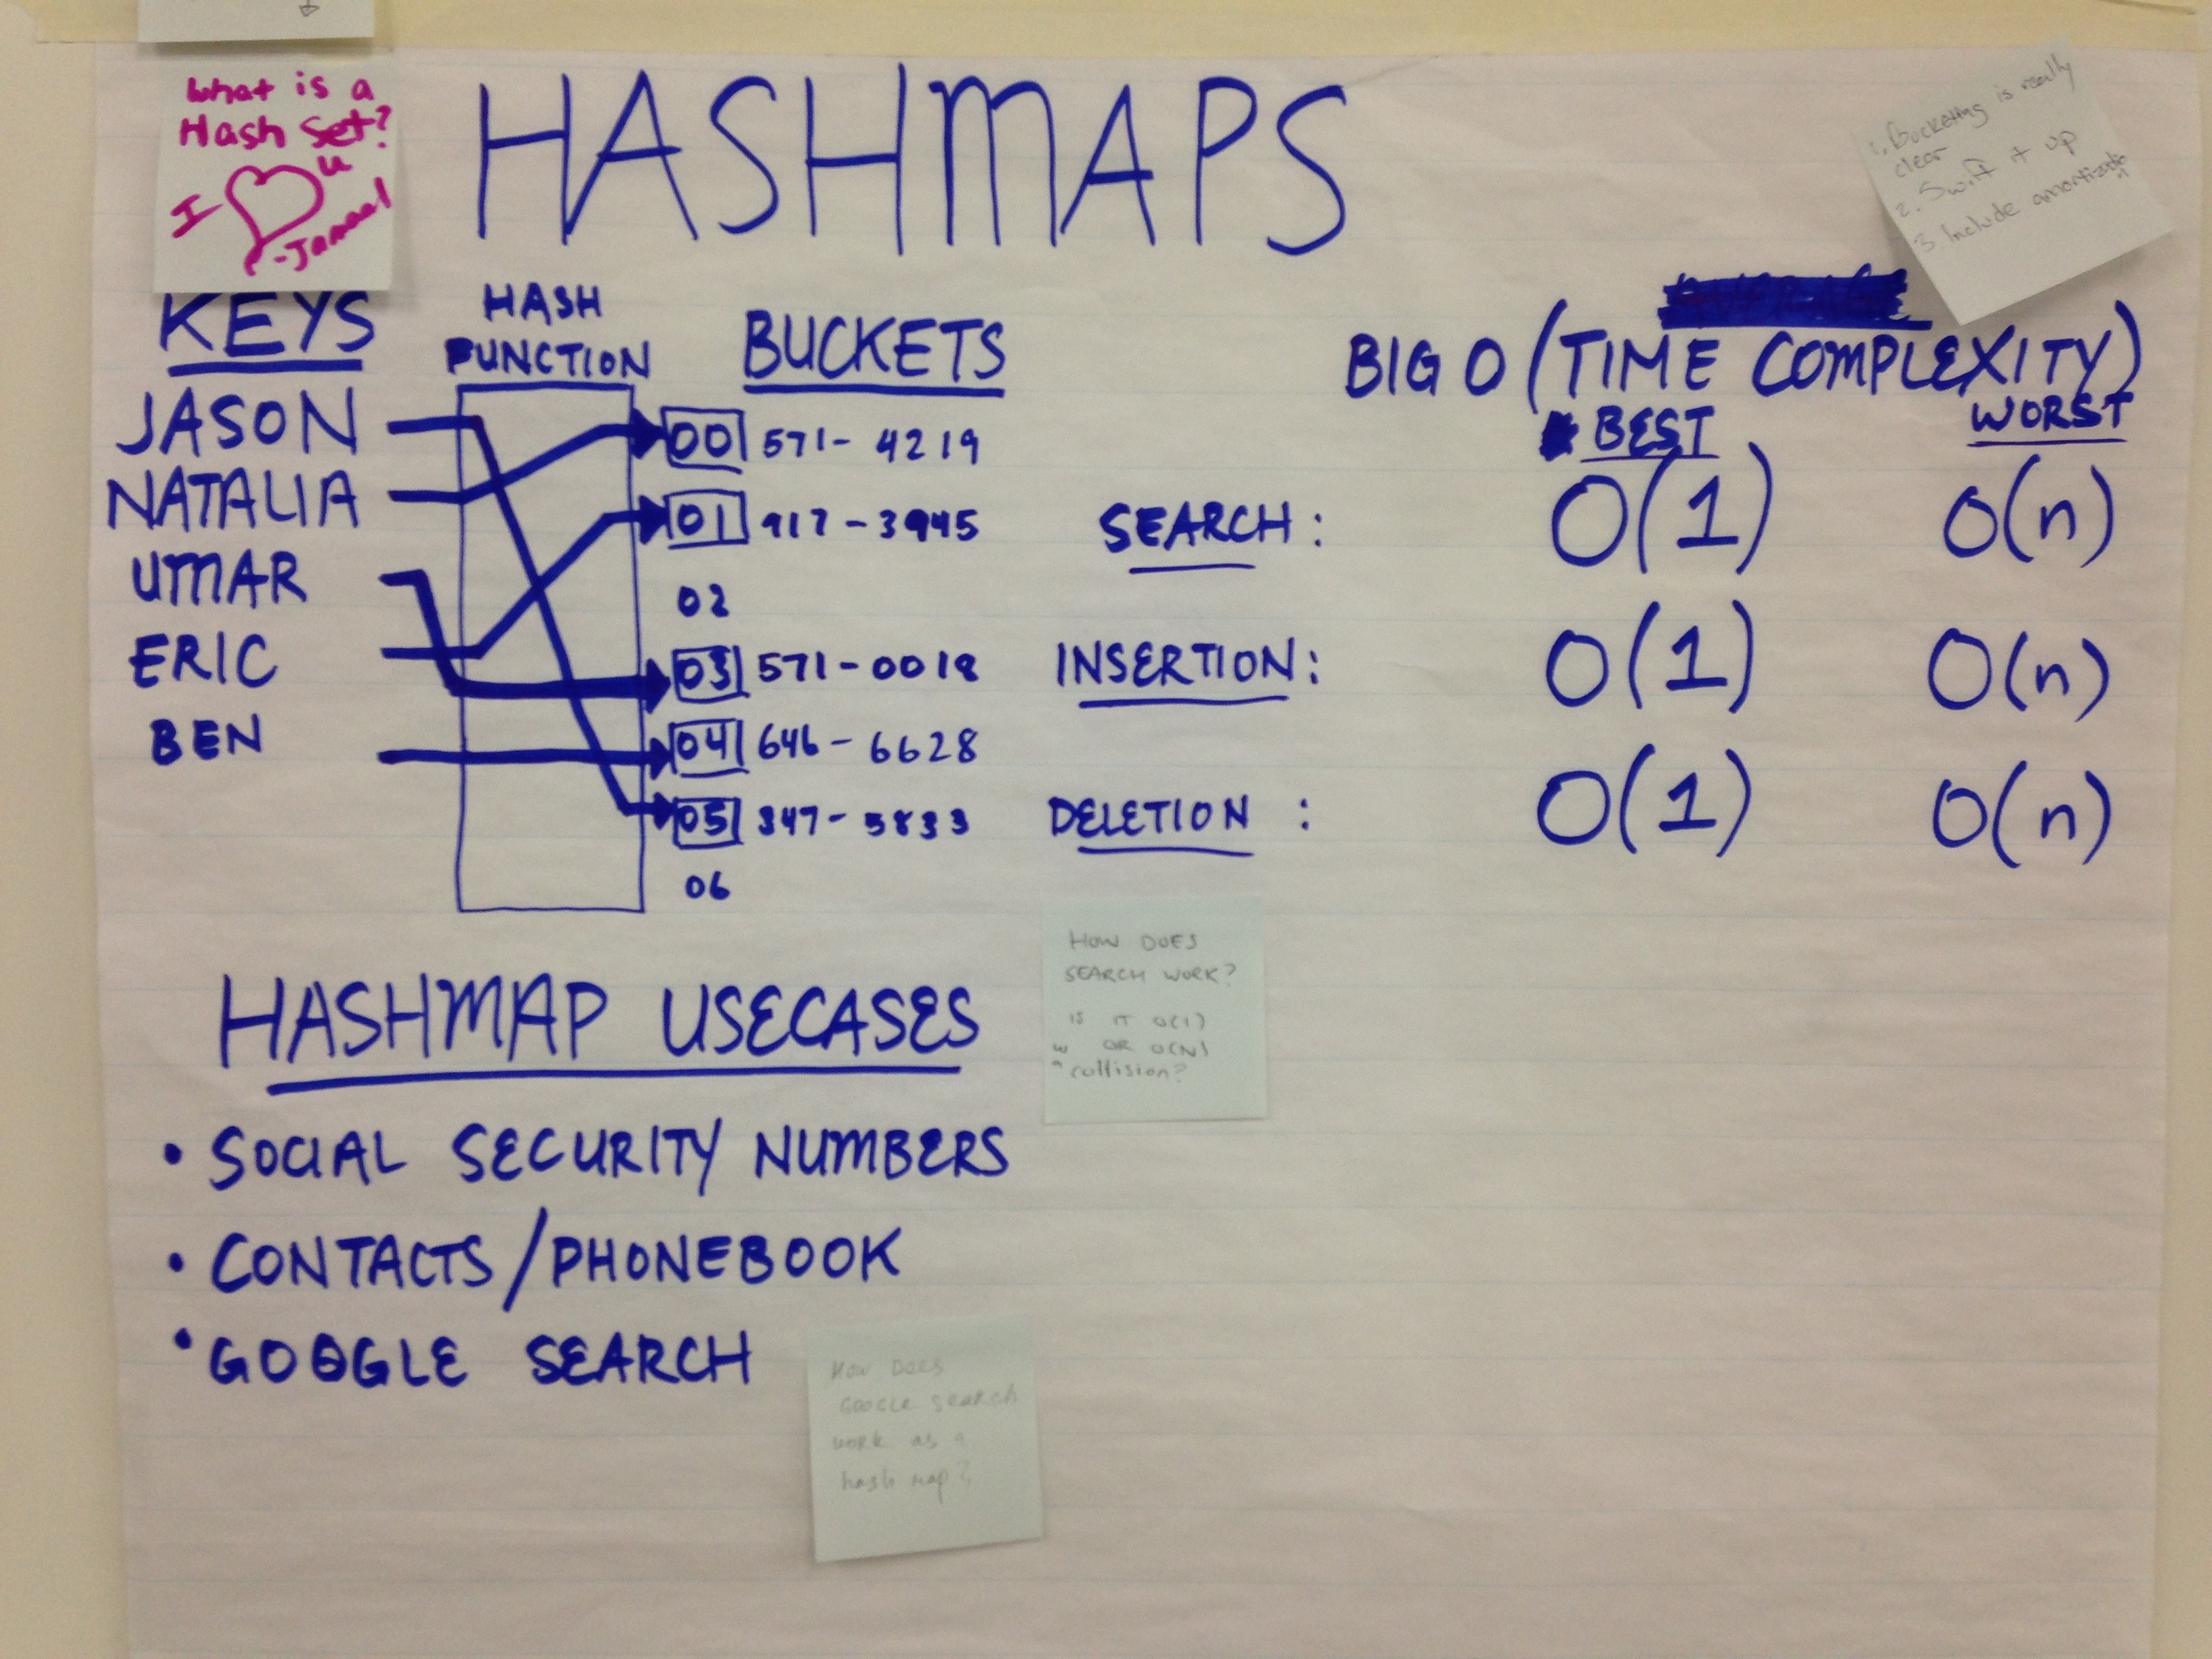 What is a
Hash Set?
I u
-Jamaal
HASHMAPS
1. Bucketing is really
clear
2. Swift it up
3 Include
KEYS
JASON
NATALIA
UMAR
ERIC
BEN
HASH
FUNCTION
BUCKETS
00 571-4219
01 917-3945
02
03 571-0018
04 646-6628
05 347-5833
06
BIG O (TIME COMPLEXITY)
BEST WORST
SEARCH: O(1) O(n)
INSERTION: O(1) O(n)
DELETION : O(1) O(n)
HOW DOES
SEARCH WORK?
IS IT O(1)
w OR O(N)
collision?
HASHMAP USECASES
• SOCIAL SECURITY NUMBERS
• CONTACTS/PHONEBOOK
• GOOGLE SEARCH
How Does
GOOGLE SEARCH
work as a
hash map?